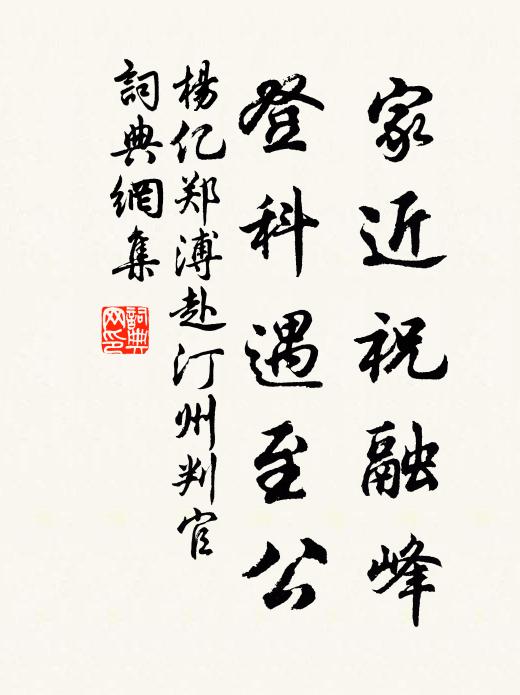 家近祝融峰
登科遇至公
楊亿郑溥赴汀州判官
詞典網集
詞典网印